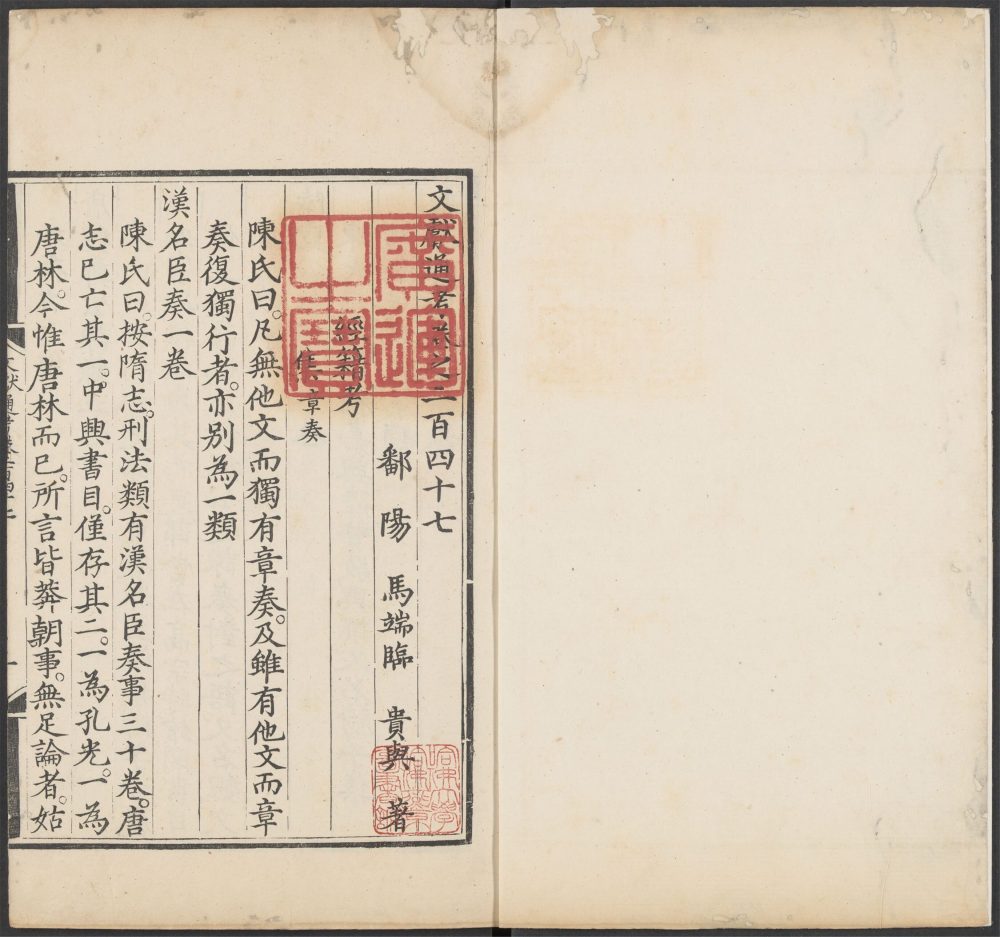 文獻通考卷之二百四十七
鄱陽 馬端臨 貴與 著
經籍考
集 章奏
陳氏曰。凡無他文而獨有章奏。及雖有他文而章
奏復獨行者。亦別為一類
漢名臣奏一卷
陳氏曰。按隋志。刑法類有漢名臣奏事三十卷。唐
志已亡其一。中興書目。僅存其二。一為孔光。一為
唐林。今惟唐林而已。所言皆莽朝事。無足論者。姑
廣運
之寶
哈佛大學